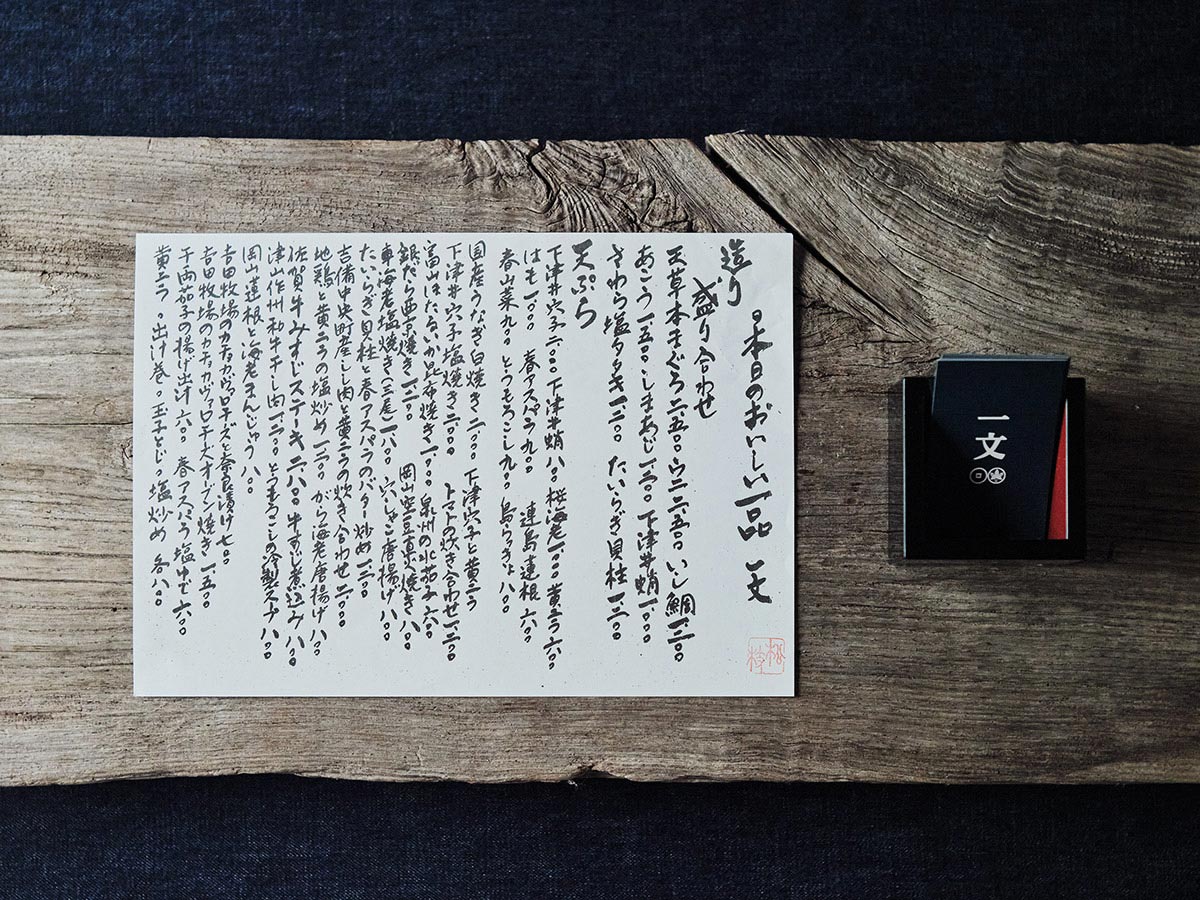 本日のおいしい一品 一文
造り
盛り合わせ
天草本まぐろ 二五〇〇 ウニ 二五〇〇 いし鯛 一二〇〇
あこう 一五〇〇 しまあじ 一二〇〇 下津井蛸 一〇〇〇
さわら塩タタキ 一二〇〇 たいらぎ貝柱 一二〇〇
天ぷら
下津井穴子 二〇〇〇 下津井蛸 八〇〇 桜海老 一〇〇〇 黄ニラ 六〇〇
はも 一八〇〇 春アスパラ 九〇〇 連島連根 六〇〇
春山菜 九〇〇 とうもろこし 九〇〇 島らっきょ 八〇〇
国産うなぎ白焼き 二八〇〇 下津穴子と黄ニラ
下津井穴子塩焼き 二〇〇〇 トマトの炊き合わせ 一二〇〇
富山ほたるいか昆布焼き 一〇〇〇 泉州の水茄子 六〇〇
銀だら西京焼き 一二〇〇 岡山空豆直火焼き 八〇〇
車海老塩焼き(三尾) 一八〇〇 穴じゃこ唐揚げ 八〇〇
たいらぎ貝柱と春アスパラのバター炒め 一二〇〇
吉備中央町産しし肉と黄ニラの炊き合わせ 二〇〇〇
地鶏と黄ニラの塩炒め 一二〇〇 がら海老唐揚げ 八〇〇
佐賀牛みすじステーキ 二八〇〇 牛すじ煮込み 八〇〇
津山作州和牛干し肉 一二〇〇 とうもろこしの冷製スープ 八〇〇
岡山連根と海老まんじゅう 八〇〇
吉田牧場のカチョカヴァロチーズと奈良漬け 七〇〇
吉田牧場のカチョカヴァロチーズオーブン焼き 一五〇〇
千両茄子の揚げ出汁 六〇〇 春アスパラ塩ゆで 六〇〇
黄ニラ。出汁巻。玉子とじ。塩炒め 各八〇〇
一文